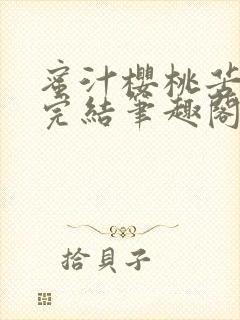 蜜汁櫻桃
完結筆趣閣
拾貝子